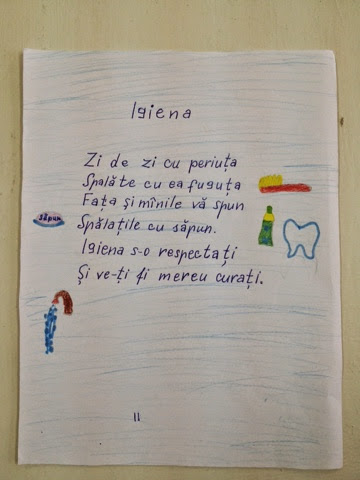 Igiena
Zi de zi cu periuța
Spală te cu ea fuguța
Fața și mînile vă spun
săpun
Spălațile cu săpun.
Igiena s-o respectați
Și ve-ți fi mereu curați.
11